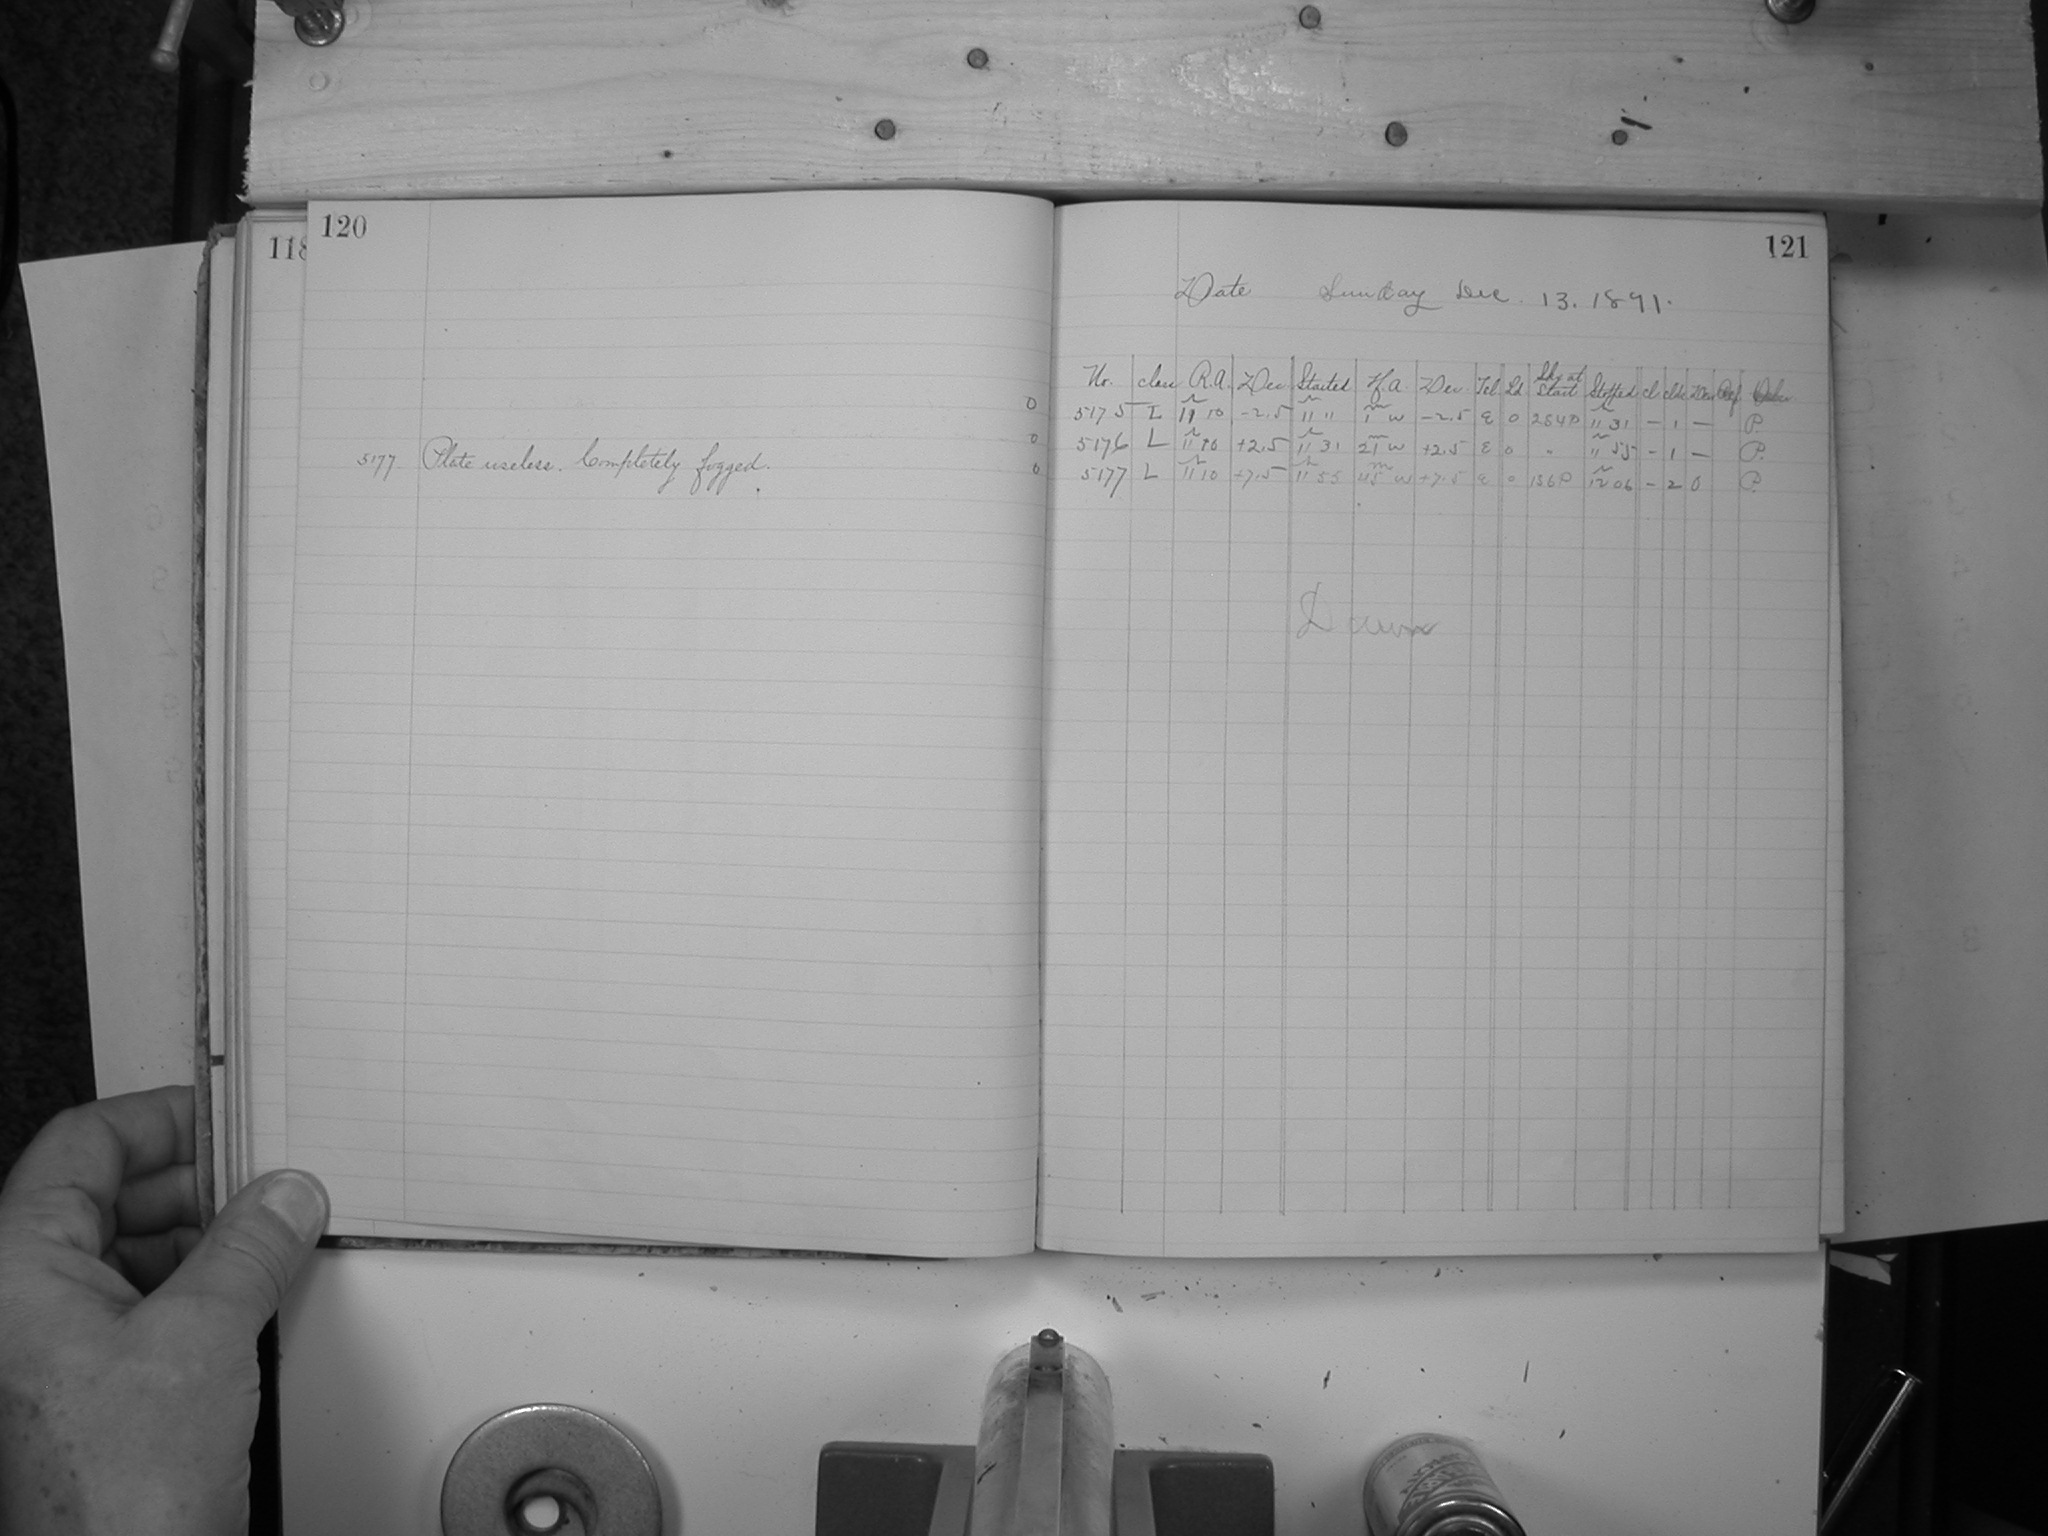 120
118
5177 Plate useless. Completely fogged.
0
0
0
121
Date Sunday Dec. 13. 1891.
No. class R.A. Dec Started H.A. Dec. Tel. Ld. Start Stopped cl clk Dew Ref.
5175 L 11h 10 -2.5 11h 11 1m W -2.5 E 0 2S4P 11h 31 - 1 - P
5176 L 11h 10 +2.5 11h 31 21m W +2.5 E 0 " 11h 55 - 1 - P.
5177 L 11h 10 +7.5 11h 55 45m W +7.5 E 0 1S6P 12h 06 - 2 0 P.
Dawn